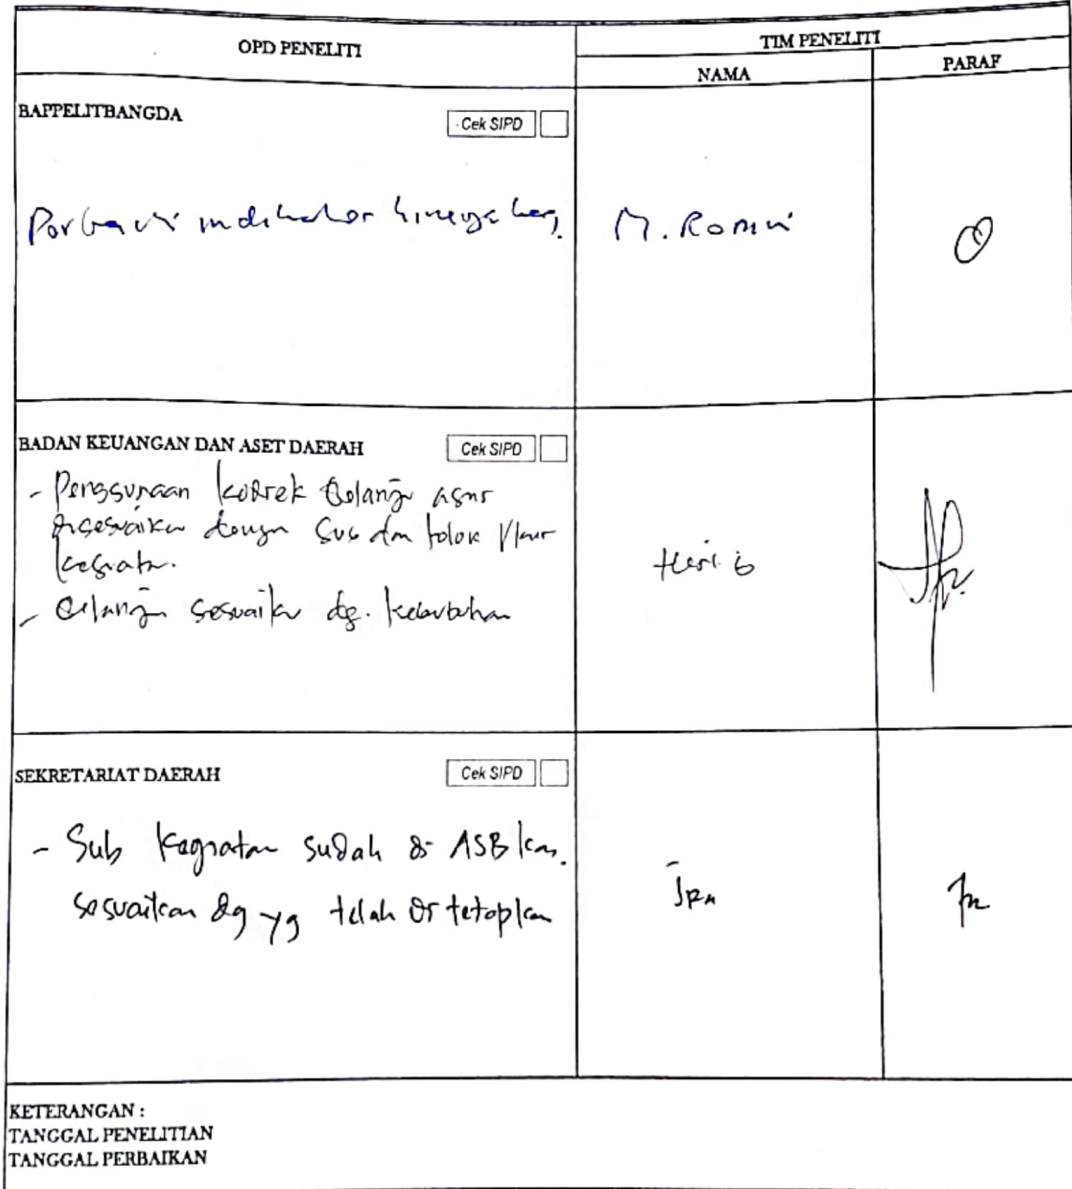 OPD PENELITI
TIM PENELITI
NAMA
PARAF
BAPPELITBANGDA
Cek SIPD
Perbaiki indikator
M. Romi
BADAN KEUANGAN DAN ASET DAERAH
Cek SIPD
- Penggunaan korek belanja agar
disesuaikan dengan sub dan tolok Ukur
kegiatan.
- Belanja sesuaikan dg. kebutuhan
Heri
SEKRETARIAT DAERAH
Cek SIPD
- Sub Kegiatan sudah di ASBkan.
sesuaikan dg yg telah di tetapkan
KETERANGAN :
TANGGAL PENELITIAN
TANGGAL PERBAIKAN